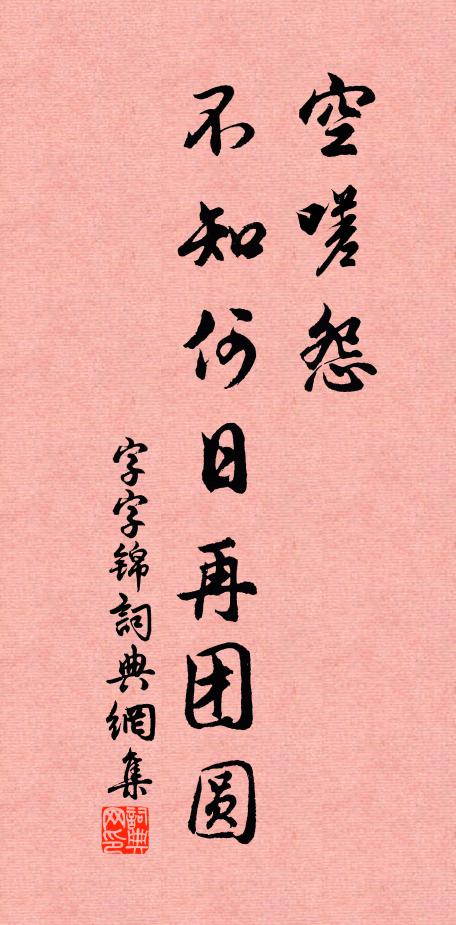 空嗟怨
不知何日再团圆
字字锦詞典網集
詞典
网印